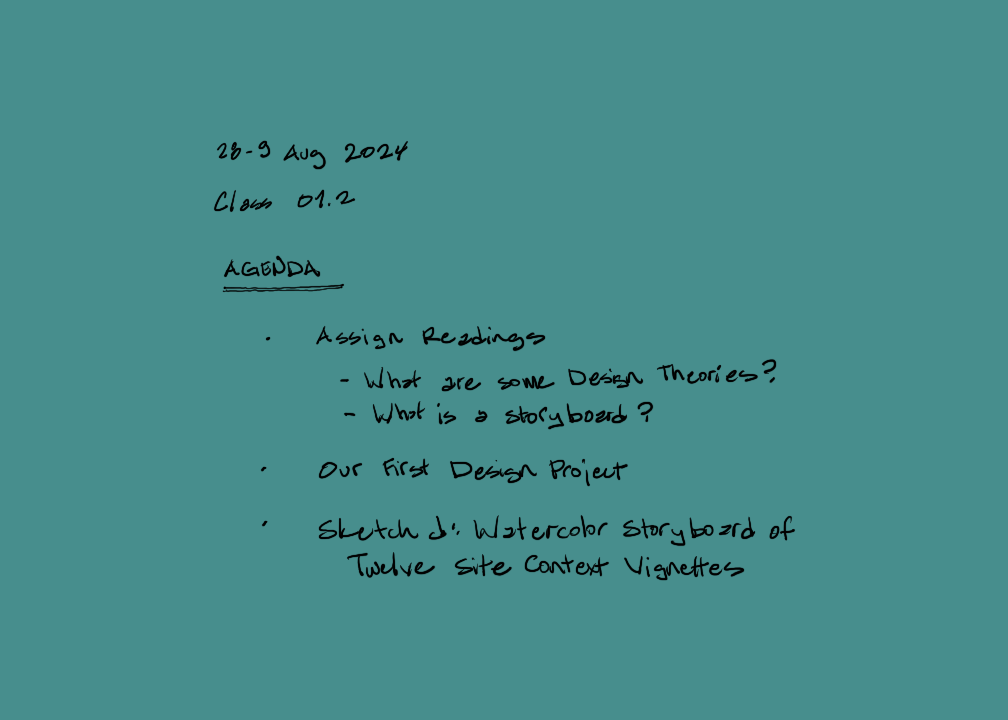 28-9 Aug 2024
Class 01.2
AGENDA
· Assign Readings
- What are some Design Theories?
- What is a storyboard?
· Our First Design Project
· Sketch & Watercolor Storyboard of
Twelve Site Context Vignettes